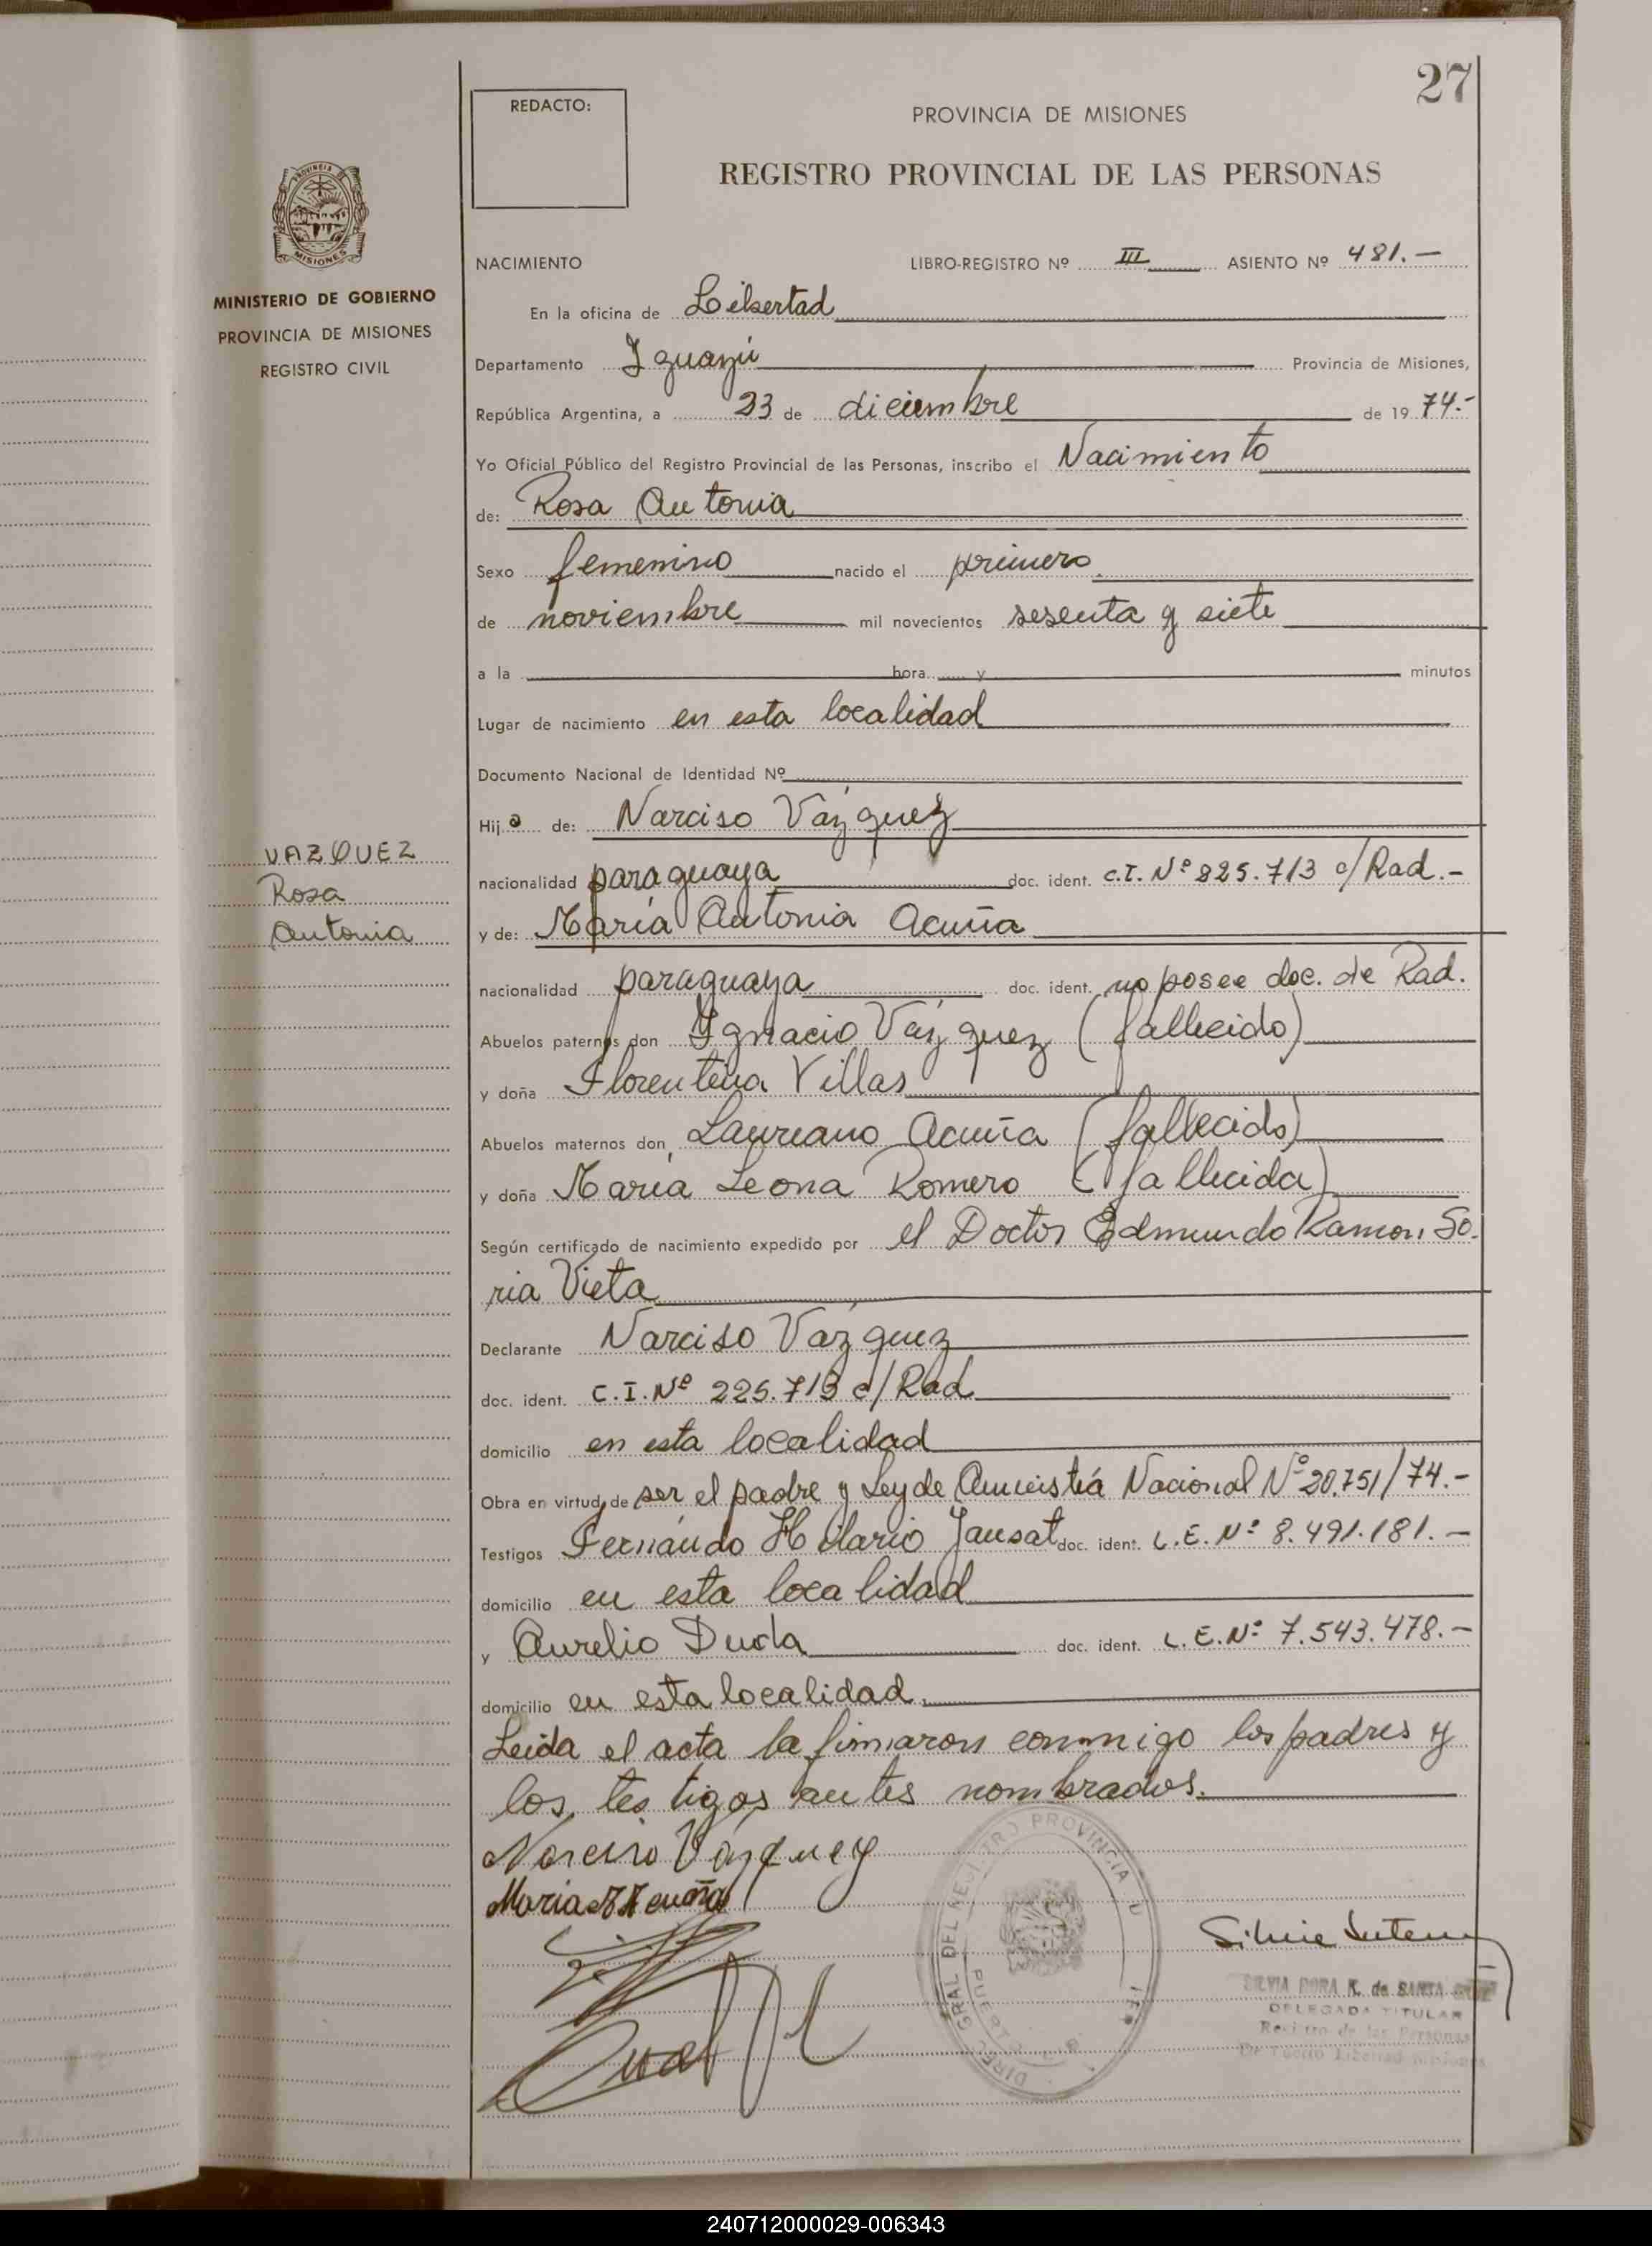 27
REDACTO:
PROVINCIA DE MISIONES
REGISTRO PROVINCIAL DE LAS PERSONAS
MISIONES
MINISTERIO DE GOBIERNO
PROVINCIA DE MISIONES
REGISTRO CIVIL
NACIMIENTO LIBRO-REGISTRO Nº III ASIENTO Nº 481.-
En la oficina de Libertad
Departamento Iguazú Provincia de Misiones,
República Argentina, a 23 de diciembre de 1974.-
Yo Oficial Público del Registro Provincial de las Personas, inscribo el Nacimiento
de: Rosa Antonia
Sexo femenino nacido el primero
de noviembre mil novecientos sesenta y siete
a la hora y minutos
Lugar de nacimiento en esta localidad
Documento Nacional de Identidad Nº
Hija de: Narciso Vázquez
VAZQUEZ
Rosa
Antonia
nacionalidad paraguaya doc. ident. C.I. Nº 825.713 c/Rad.-
y de: María Antonia Acuña
nacionalidad paraguaya doc. ident. no posee doc. de Rad.
Abuelos paternos don Ygnacio Vázquez (fallecido)
y doña Florentina Villas
Abuelos maternos don Laureano Acuña (fallecido)
y doña María Leona Romero (fallecida)
Según certificado de nacimiento expedido por el Doctor Edmundo Ramon So-
ria Vieta
Declarante Narciso Vázquez
doc. ident. C.I. Nº 225.713 c/Rad
domicilio en esta localidad
Obra en virtud de ser el padre y Ley de Amnistiá Nacional Nº 20.751/74.-
Testigos Fernándo Hilario Jansat doc. ident. L.E. Nº 8.491.181.-
domicilio en esta localidad
y Aurelio Duda doc. ident. L.E. Nº 7.543.478.-
domicilio en esta localidad.
Leída el acta la firmaron conmigo los padres y
los testigos antes nombrados.
Narciso Vázquez
Maria A Acuña
DIREC. GRAL DEL REGISTRO PROVINCIAL
SILVIA DORA K. de SANTA
DELEGADA TITULAR
Registro de las Personas
De Puerto Libertad Misiones
240712000029-006343